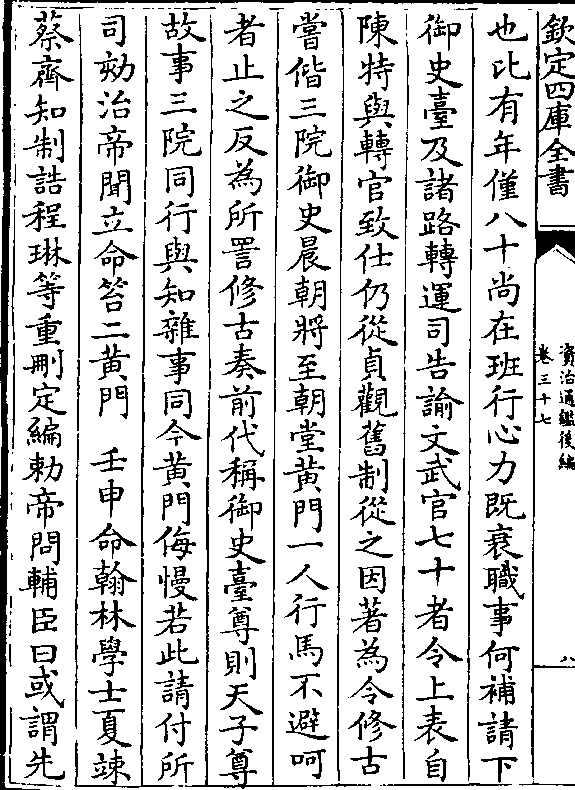 欽定四庫全書
資治通鑑後編
卷三十七
八
也比有年僅八十尚在班行心力既衰職事何補請下
御史臺及諸路轉運司告諭文武官七十者令上表自
陳特與轉官致仕仍從貞觀舊制從之因著為令修古
嘗偕三院御史晨朝將至朝堂黄門一人行馬不避呵
者止之反為所詈修古奏前代稱御史臺尊則天子尊
故事三院同行與知雜事同今黄門侮慢若此請付所
司劾治帝聞立命笞二黄門　壬申命翰林學士夏竦
蔡齊知制誥程琳等重刪定編勅帝問輔臣曰或謂先